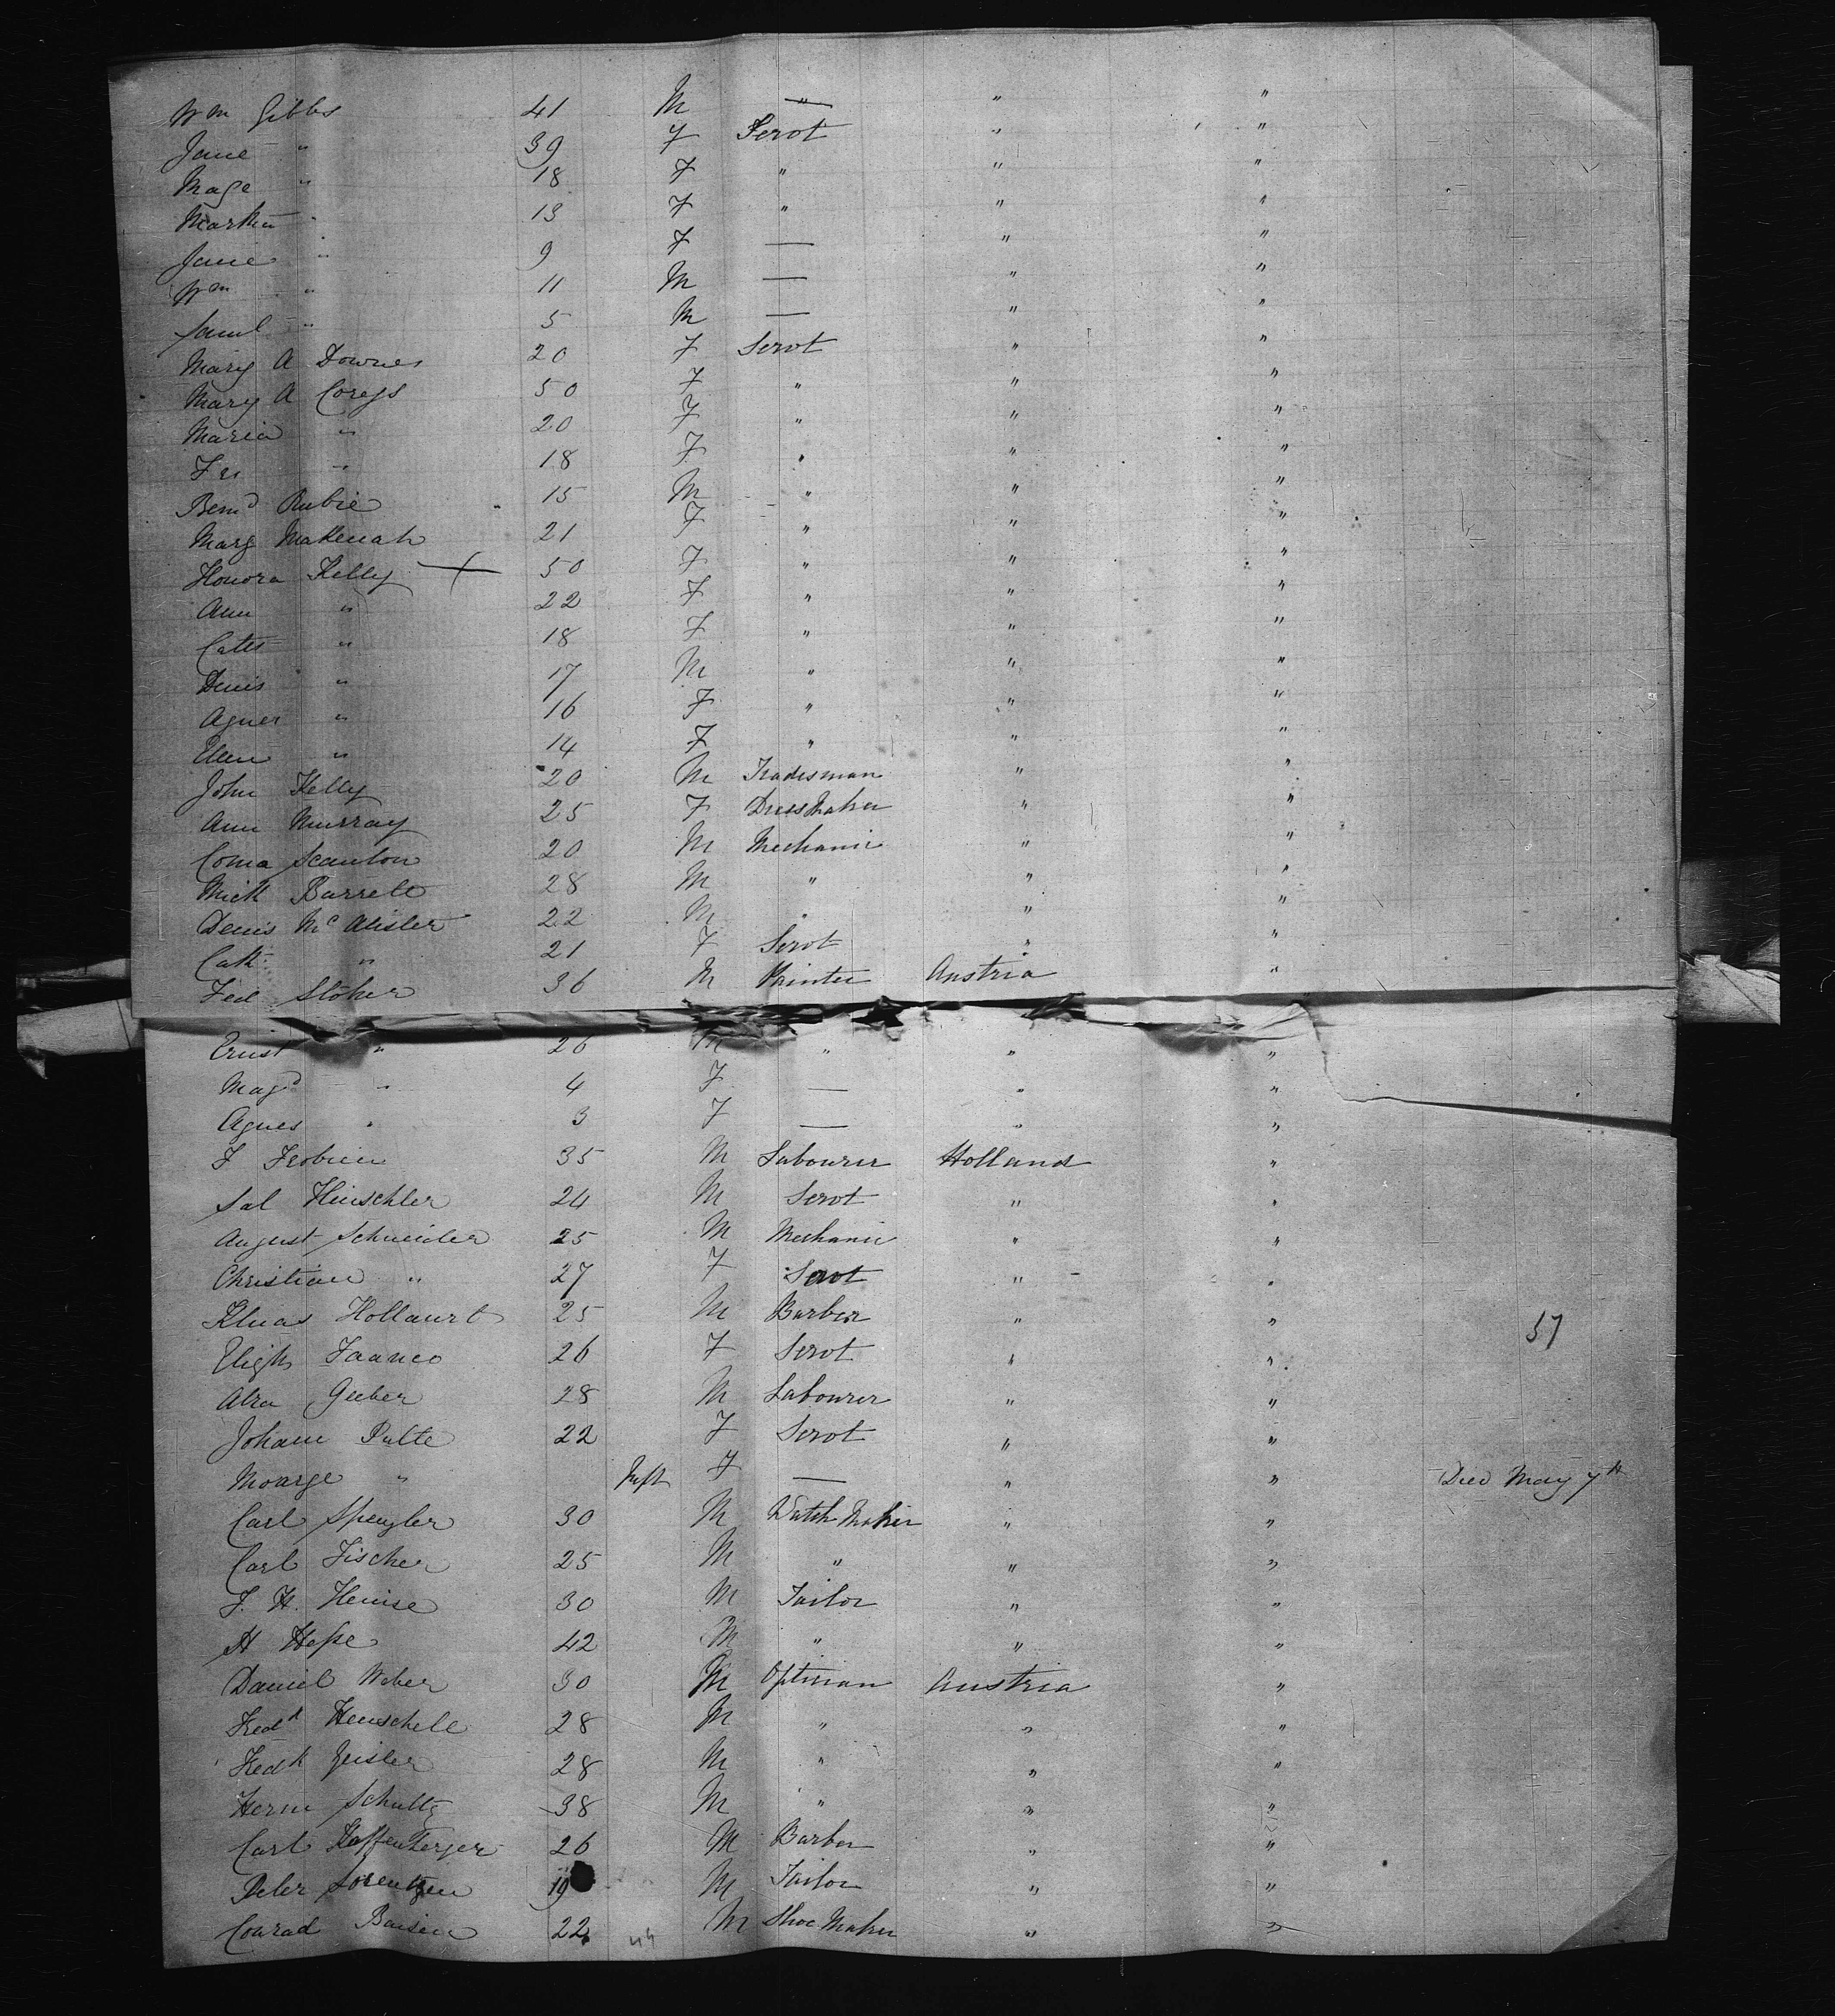 Wm Gibbs 41 M " " "
Jane " 39 F Servt " "
Mage " 18 F " " "
Martha " 13 F " " "
Jane " 9 F — " "
Wm " 11 M — " "
Saml " 5 M — " "
Mary A Downes 20 F Servt " "
Mary A Coreys 50 F " " "
Maria " 20 F " " "
Frs " 18 F " " "
Bernd Rubie 15 M " " "
Marg MaKenah 21 F " " "
Honora Kelly + 50 F " " "
Ann " 22 F " " "
Cath " 18 F " " "
Denis " 17 M " " "
Agnes " 16 F " " "
Ellen " 14 F " " "
John Kelly 20 M Tradesman " "
Ann Murray 25 F Dress Maker " "
Coma Scanlon 20 M Mechanic " "
Mich Barrett 28 M " " "
Denis Mc Alister 22 M " " "
Cath " 21 F Servt " "
Fed Stöker 36 M Painter Austria "
Ernst " 26 M " " "
Magd " 4 F — " "
Agnes " 3 F — " "
F Frobien 35 M Labourer Holland "
Sal Hinschler 24 M Servt " "
August Schneider 25 M Mechanic " "
Christian " 27 F Servt " "
Kluas Hollaurt 25 M Barber " " 57
Eligh Faanco 26 F Servt " "
Alra Geeber 28 M Labourer " "
Johann Pulte 22 F Servt " "
Moarge " Inft F — " " Died May 7th
Carl Spengler 30 M Watch Maker " "
Carl Fischer 25 M " " "
F. H. Heinise 30 M Tailor " "
H Hesse 42 M " " "
Daniel Weber 30 M Optician Austria "
Fredk Henschell 28 M " " "
Fredk Zeisler 28 M " " "
Herm Schultz 38 M " " "
Carl Haffenberger 26 M Barber " "
Peter Lorentzen 19 M Tailor " "
Conrad Bausien 22 M Shoe Maker " "